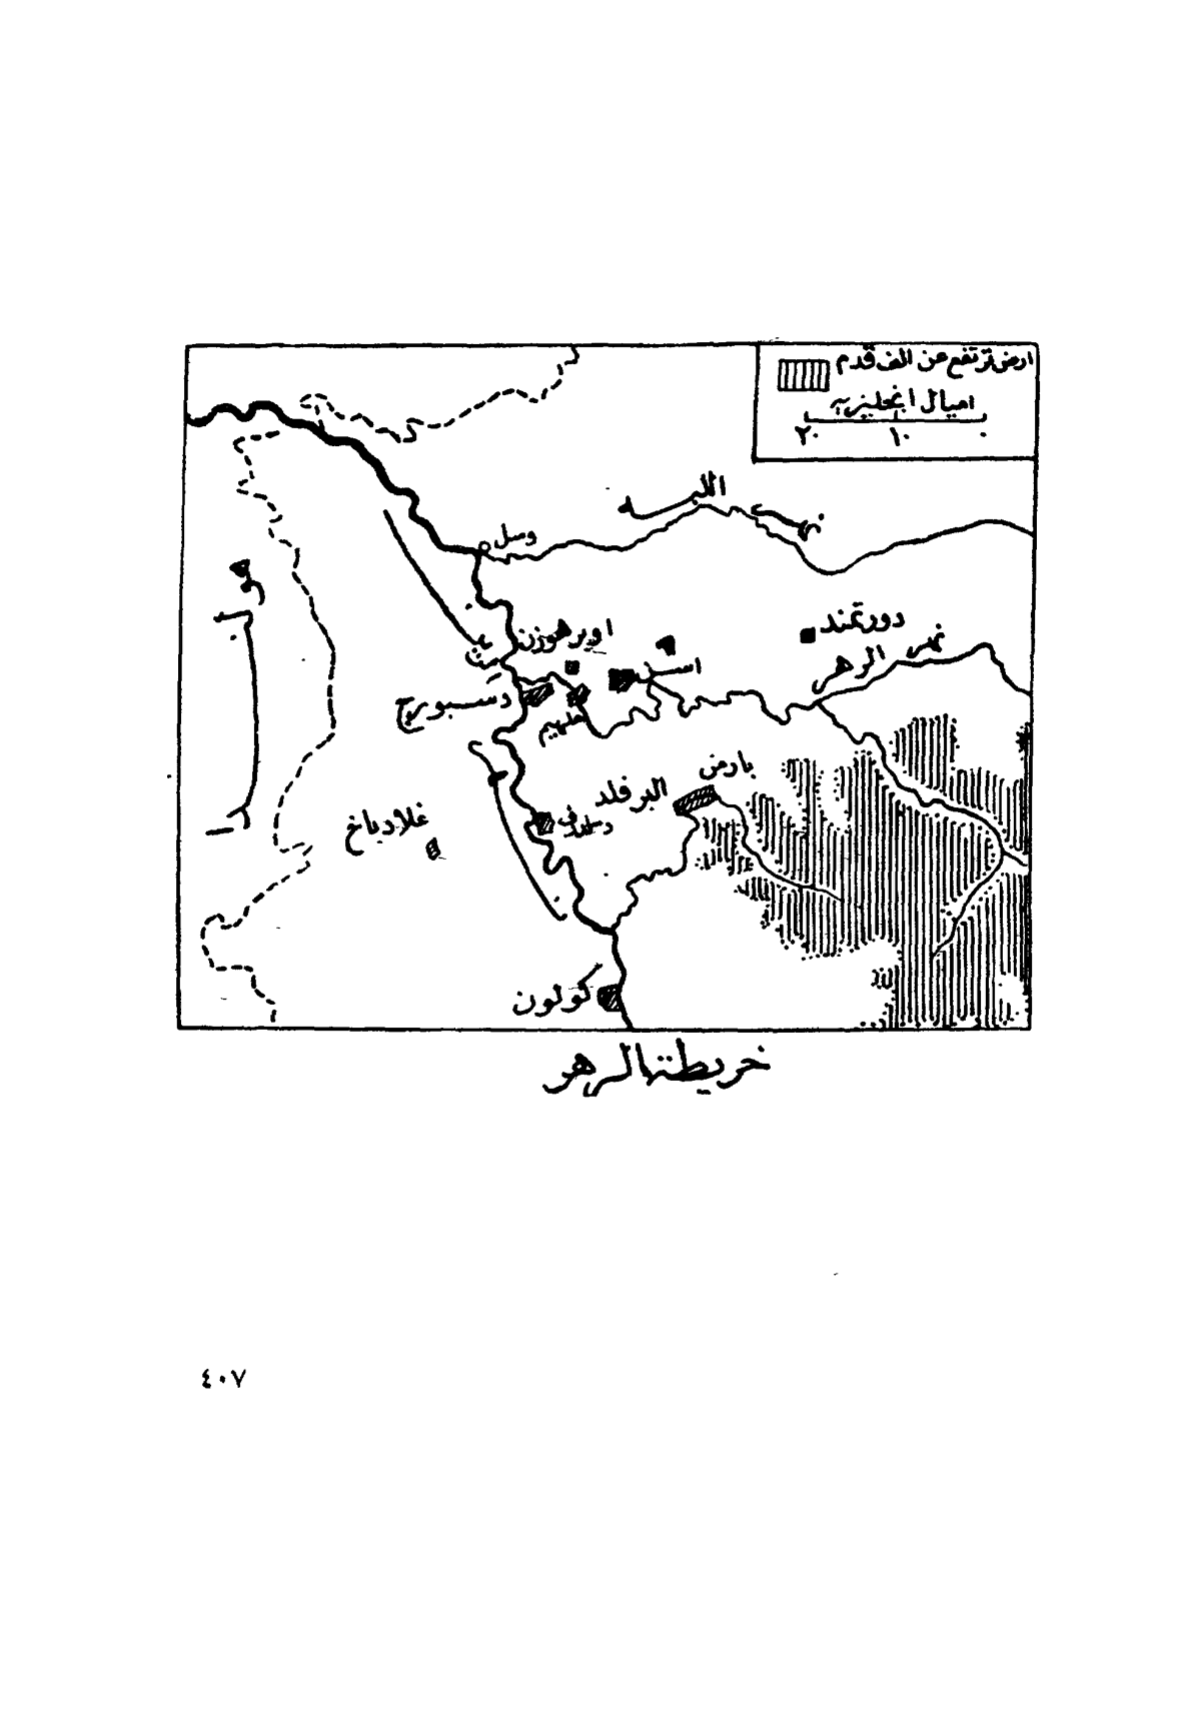 ارض ترتفع عن الف قدم
اميال انجليزيه
٢٠ ١٠ ٠
نهر اللبه
وسل
هولندا
اوبرهوزن
دورتمند
نهر الرهر
اسن
دسبورج
ملهيم
بارمن
البرفلد
غلادباخ
دسلدرف
كولون
خريطة الرهر
٤٠٧